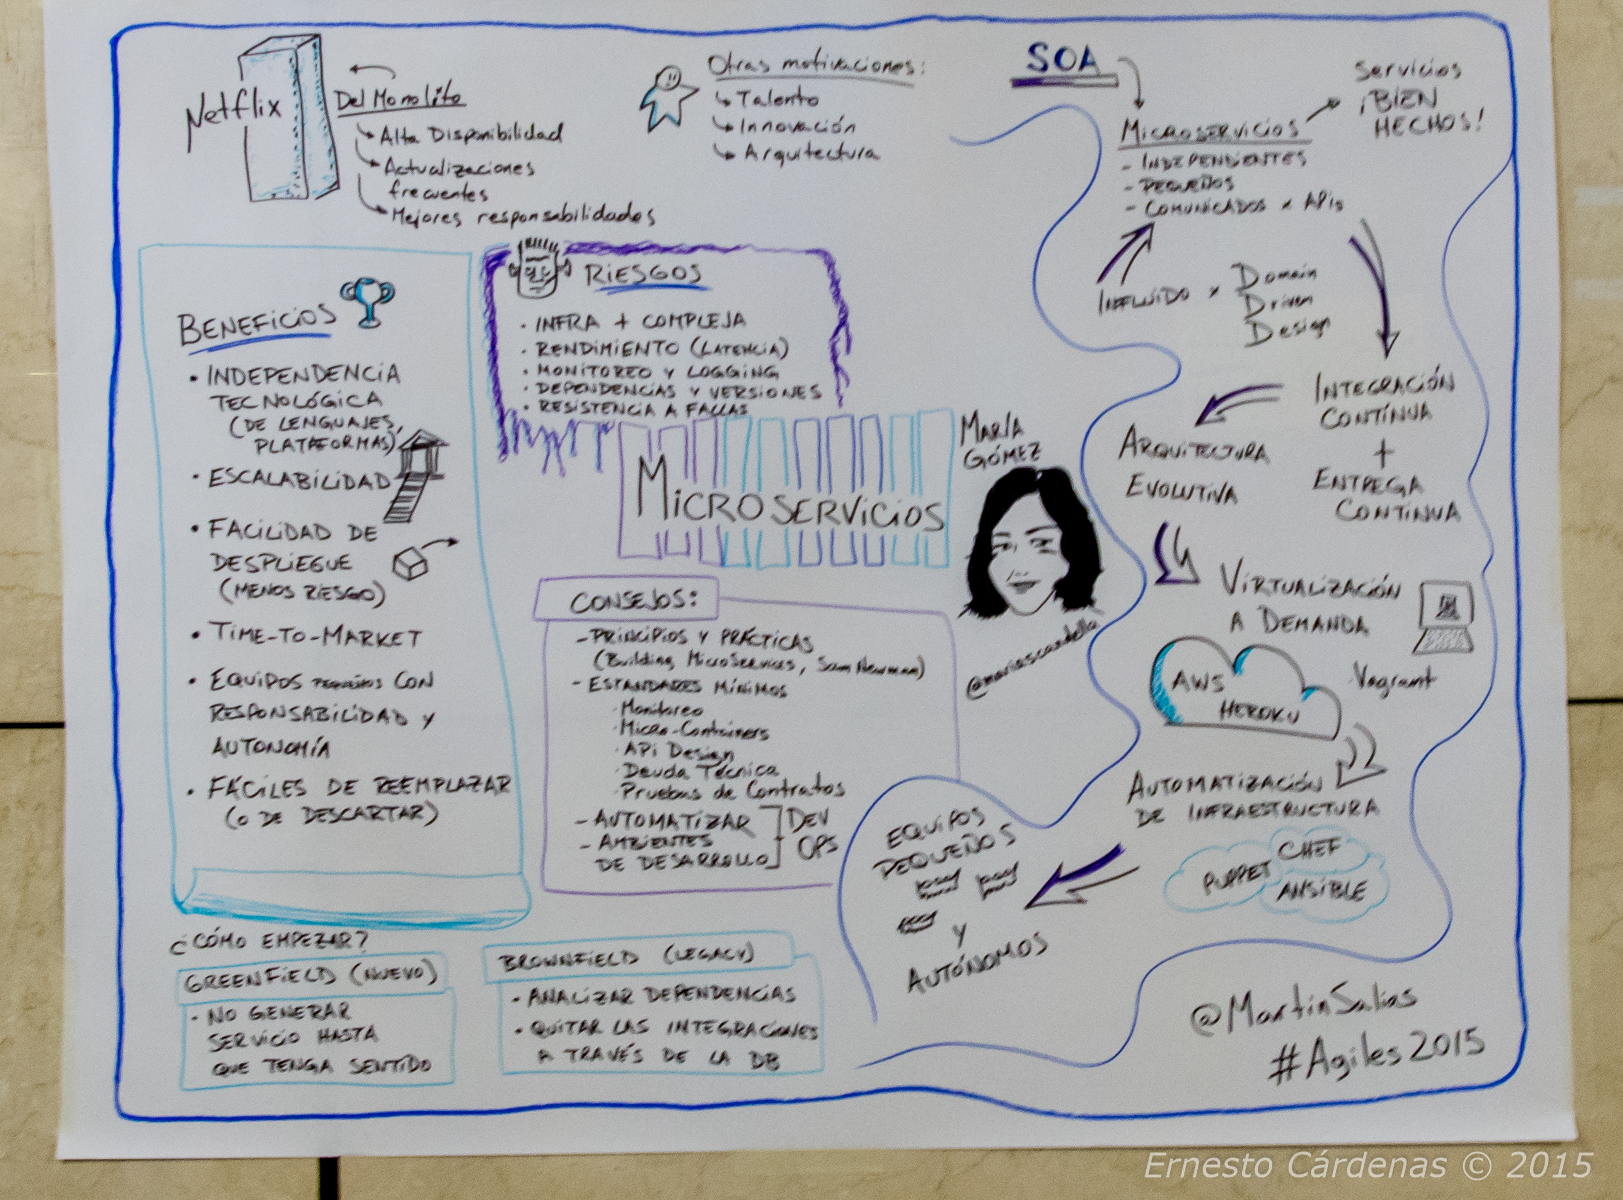 Netflix
Del Monolito
Alta Disponibilidad
Actualizaciones
frecuentes
Mejores responsabilidades
Otras motivaciones:
Talento
Innovación
Arquitectura
SOA
Servicios
¡BIEN
HECHOS!
MICROSERVICIOS
- INDEPENDIENTES
- PEQUEÑOS
- COMUNICADOS x APIs
INFLUIDO x Domain
Driven
Design
INTEGRACIÓN
CONTÍNUA
+
ENTREGA
CONTÍNUA
ARQUITECTURA
EVOLUTIVA
VIRTUALIZACIÓN
A DEMANDA
Vagrant
AWS
HEROKU
AUTOMATIZACIÓN
DE INFRAESTRUCTURA
CHEF
PUPPET
ANSIBLE
EQUIPOS
PEQUEÑOS
Y
AUTÓNOMOS
BENEFICIOS
• INDEPENDENCIA
TECNOLÓGICA
(DE LENGUAJES,
PLATAFORMAS)
• ESCALABILIDAD
• FACILIDAD DE
DESPLIEGUE
(MENOS RIESGO)
• TIME-TO-MARKET
• EQUIPOS PEQUEÑOS CON
RESPONSABILIDAD Y
AUTONOMÍA
• FÁCILES DE REEMPLAZAR
(O DE DESCARTAR)
RIESGOS
· INFRA + COMPLEJA
· RENDIMIENTO (LATENCIA)
· MONITOREO Y LOGGING
· DEPENDENCIAS Y VERSIONES
· RESISTENCIA A FALLAS
MICROSERVICIOS
MARÍA
GÓMEZ
CONSEJOS:
- PRINCIPIOS Y PRÁCTICAS
(Building MicroServices, Sam Newman)
- ESTANDARES MÍNIMOS
· Monitoreo
· Micro-Containers
· API Design
· Deuda Técnica
· Pruebas de Contratos
- AUTOMATIZAR
- AMBIENTES
DE DESARROLLO
DEV
OPS
¿CÓMO EMPEZAR?
GREENFIELD (NUEVO)
· NO GENERAR
SERVICIO HASTA
QUE TENGA SENTIDO
BROWNFIELD (LEGACY)
· ANALIZAR DEPENDENCIAS
· QUITAR LAS INTEGRACIONES
A TRAVÉS DE LA DB
@MartinSalias
#Agiles2015
Ernesto Cárdenas © 2015